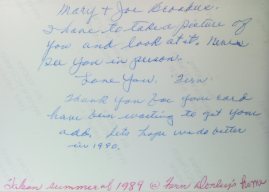 Mary & Joe
I have to take a picture of
you and look at it. Never
see you in person.
Love You. Fern
Thank you for your card
have been waiting to get your
add. Lets hope we do better
in 1990.
Taken summer of 1989 @ Fern Donley's home